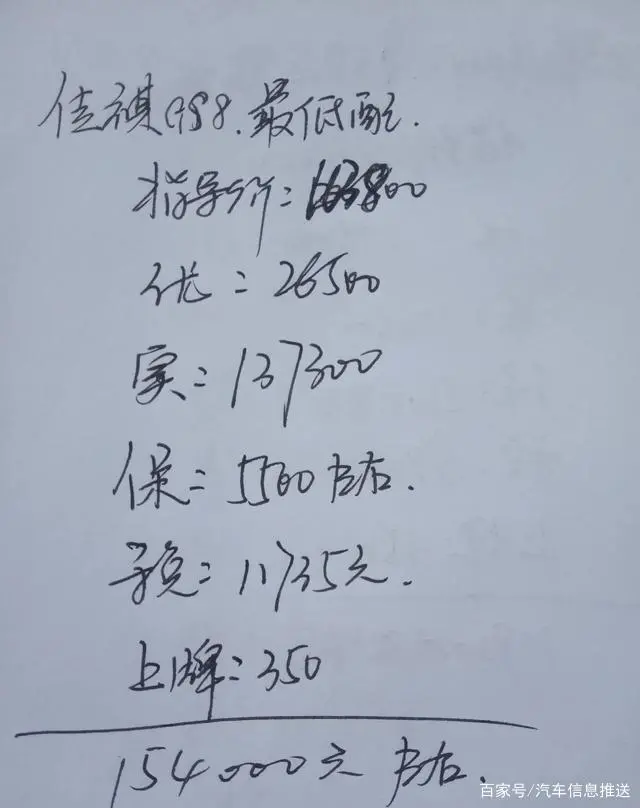 佳祺GS8.最低配.
指导价：163800
优：26500
实：137300
保：5500左右.
预：11735元.
上牌：350
154000元左右.
百家号/汽车信息推送